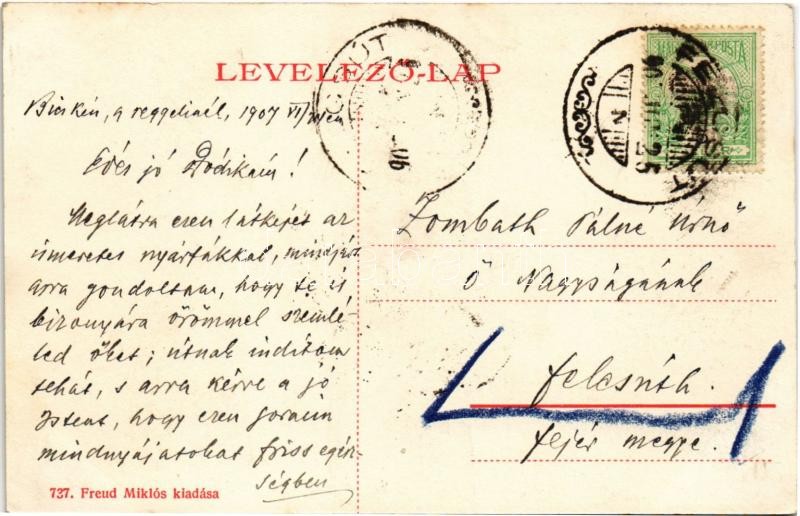 LEVELEZŐ-LAP
POSTA
Bicskén, a reggelinél, 1907 VI/
Édes jó Dódikám!
Meglátva ezen látképet az
ismeretes nyárfákkal, mindjárt
arra gondoltam, hogy te is
bizonyára örömmel szemlé-
led őket; útnak indítom
tehát, s arra kérve a jó
Istent, hogy ezen soraim
mindnyájatokat friss egés-
ségben
Zombath Pálné úrnő
ő Nagyságának
Felcsúth.
Fejér megye.
737. Freud Miklós kiadása